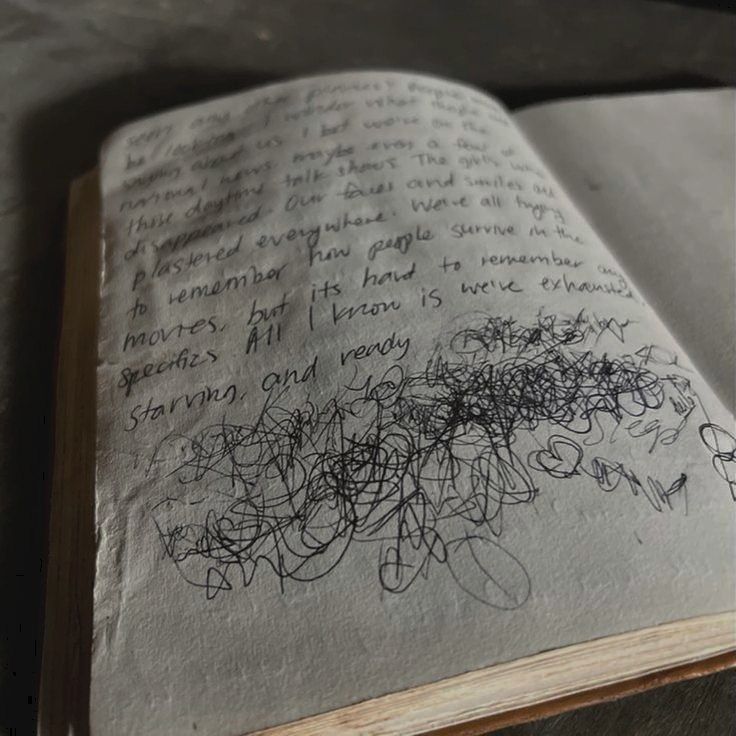 seen any other planes? People must
be looking. I wonder what people are
saying about us. I bet we're on the
national news. maybe even a few of
those daytime talk shows. The girls who
disappeared. Our faces and smiles are
plastered everywhere. We're all trying
to remember how people survive in the
movies, but its hard to remember any
specifics. All I know is we're exhausted,
starving, and ready
sleep